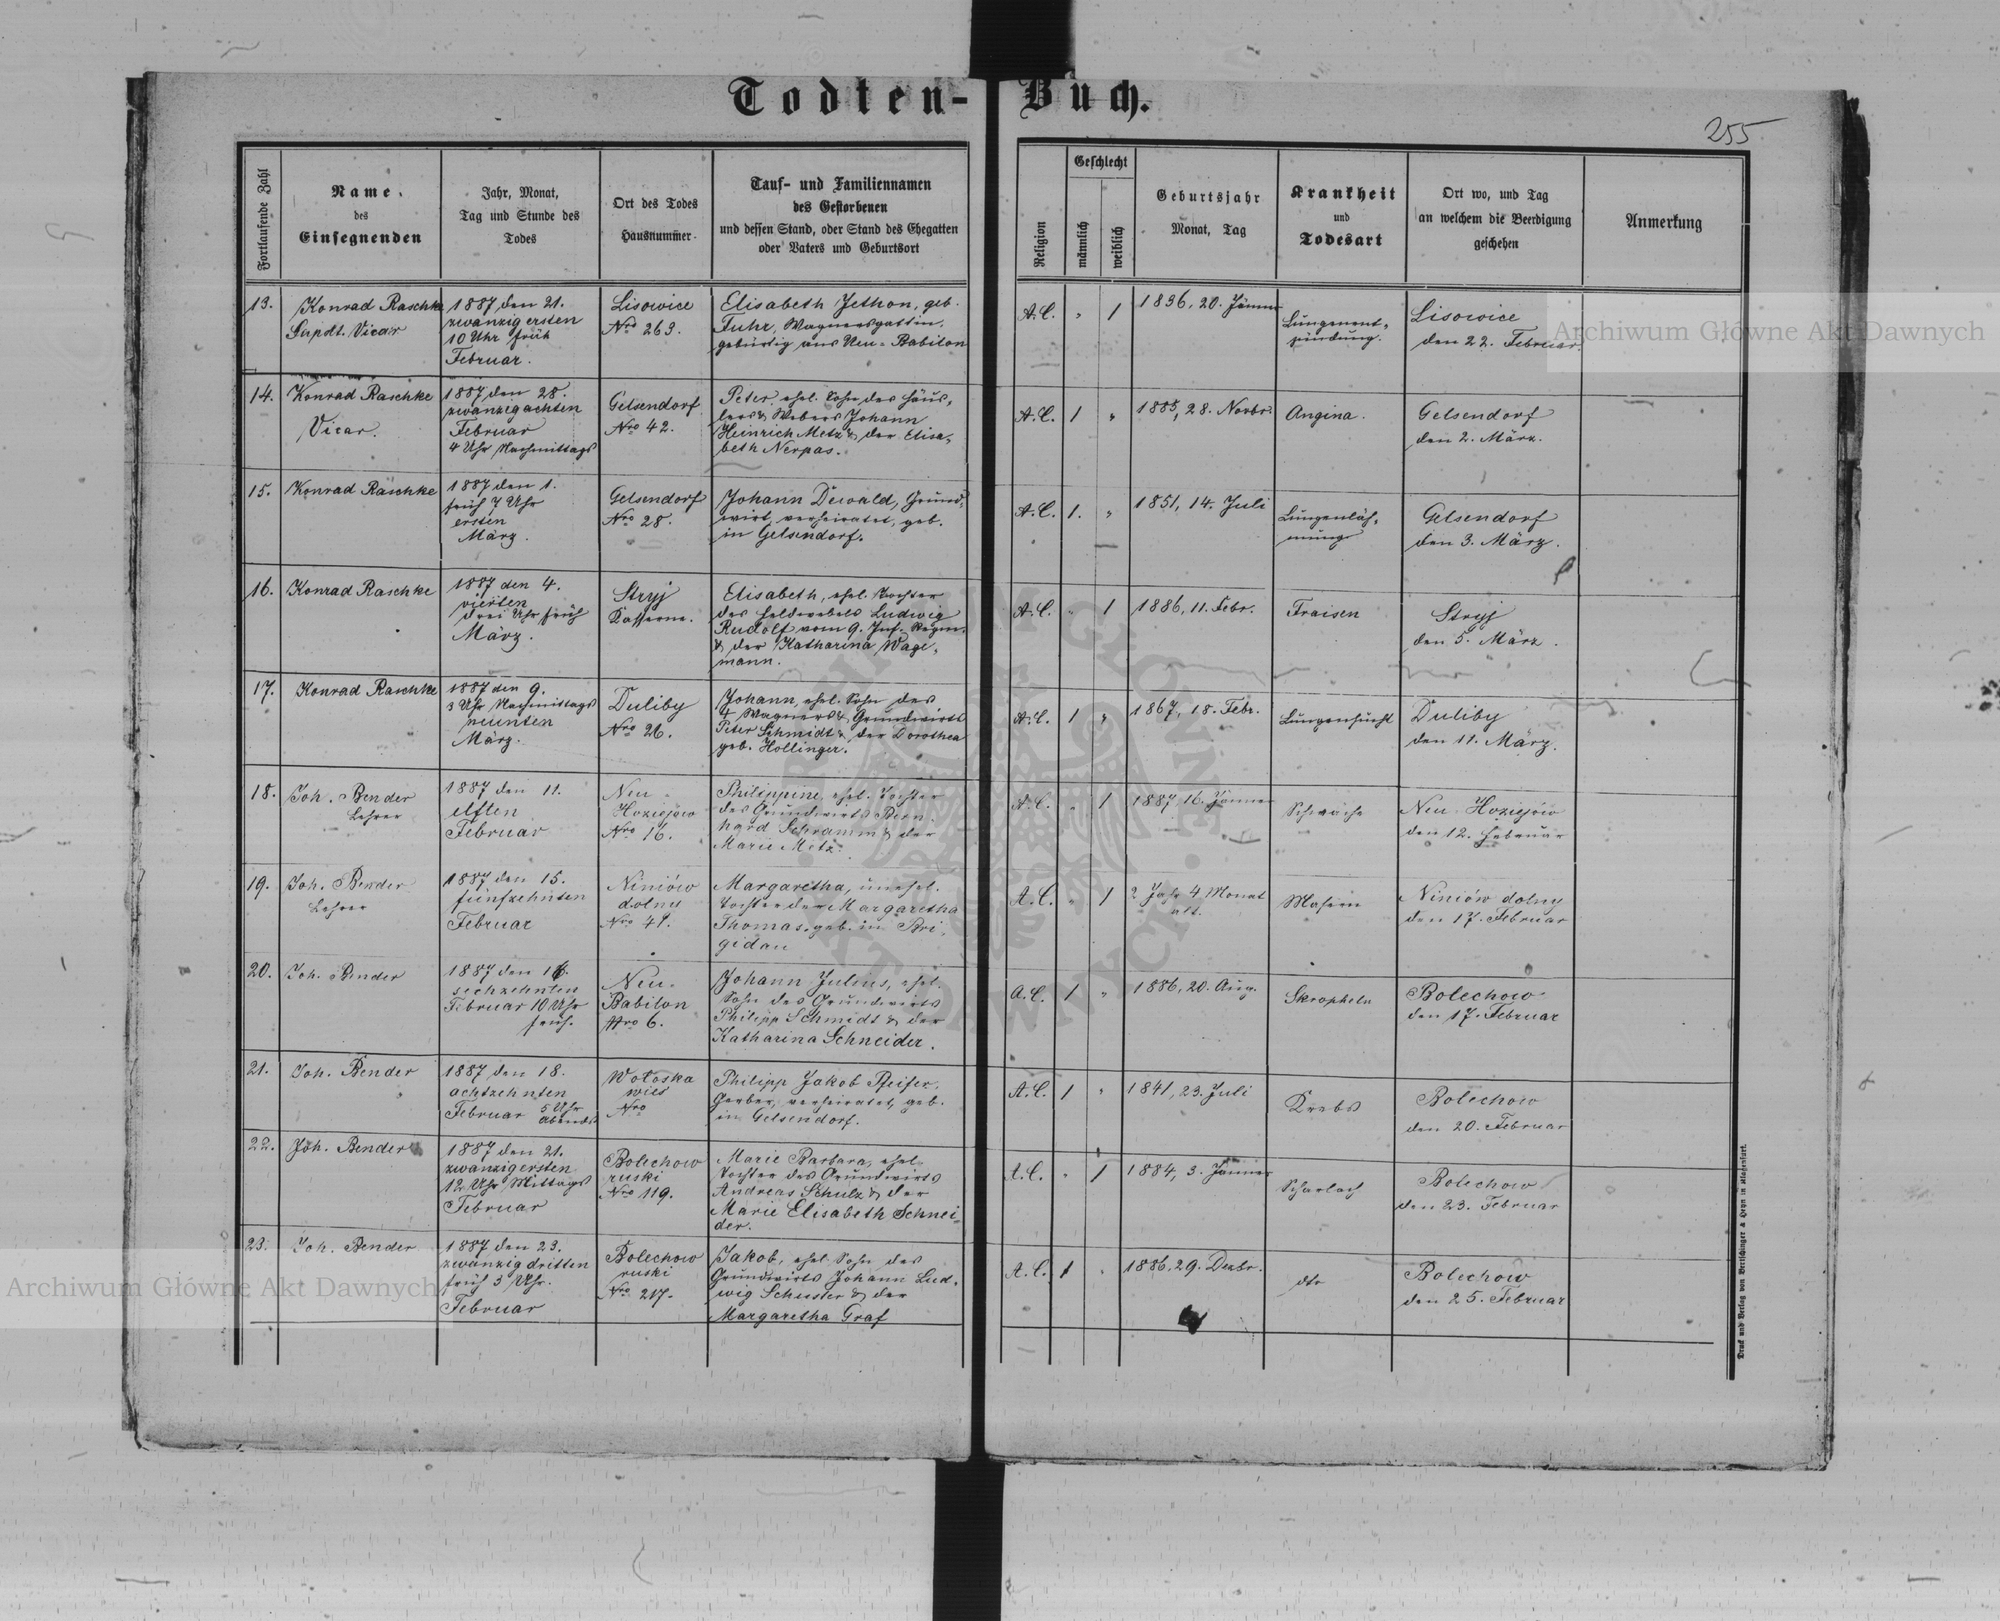 Todten-Buch.
255
Fortlaufende Zahl
Name.
des
Einsegnenden
Jahr, Monat,
Tag und Stunde des
Todes
Ort des Todes
Hausnummer.
Tauf- und Familiennamen
des Gestorbenen
und dessen Stand, oder Stand des Ehegatten
oder Vaters und Geburtsort
Religion
Geschlecht
männlich
weiblich
Geburtsjahr
Monat, Tag
Krankheit
und
Todesart
Ort wo, und Tag
an welchem die Beerdigung
geschehen
Anmerkung
13.
Konrad Raschke
Supdt. Vicar
1887 den 21.
zwanzigersten
10 Uhr früh
Februar.
Lisowice
Nro 263.
Elisabeth Jethon, geb.
Fuhr, Wagnersgattin,
gebürtig aus Neu-Babilon
A.C. " 1
1836, 20. Jänner
Lungenent-
zündung.
Lisowice
den 22. Februar.
14.
Konrad Raschke
Vicar.
1887 den 28.
zwanzigachten
Februar
4 Uhr Nachmittags
Gelsendorf
Nro 42.
Peter, ehel. Sohn des Häus-
lers & Webers Johann
Heinrich Metz & der Elisa-
beth Nerpas.
A.C. 1 "
1885, 28. Novbr.
Angina.
Gelsendorf
den 2. März.
15.
Konrad Raschke
1887 den 1.
früh 7 Uhr
ersten
März.
Gelsendorf
Nro 28.
Johann Dewald, Grund-
wirt, verheiratet, geb.
in Gelsendorf.
A.C. 1. "
1851, 14. Juli
Lungenläh-
mung
Gelsendorf
den 3. März.
16.
Konrad Raschke
1887 den 4.
vierten
drei Uhr früh
März.
Stryj
Kasserne.
Elisabeth, ehel. Tochter
des Feldwebels Ludwig
Rudolf vom 9. Inf. Regim.
& der Katharina Wage-
mann.
A.C. " 1
1886, 11. Febr.
Fraisen
Stryj
den 5. März.
17.
Konrad Raschke
1887 den 9.
3 Uhr Nachmittags
neunten
März.
Duliby
Nro 26.
Johann, ehel. Sohn des
Wagners & Grundwirts
Peter Schmidt & der Dorothea
geb. Hollinger.
A.C. 1 "
1867, 18. Febr.
Lungensucht
Duliby
den 11. März.
18.
Joh. Bender
Lehrer
1887 den 11.
elften
Februar
Neu
Hoziejów
Nro 16.
Philippine, ehel. Tochter
des Grundwirts Bern-
hard Schramm & der
Marie Metz.
A.C. " 1
1887, 16. Jänner
Schwäche
Neu Hoziejów
den 12. Februar
19.
Joh. Bender
Lehrer
1887 den 15.
fünfzehnten
Februar
Niniów
dolny
Nro 41.
Margaretha, unehel.
Tochter der Margaretha
Thomas, geb. in Bri-
gidau
A.C. " 1
2 Jahr 4 Monat
alt.
Masern
Niniów dolny
den 17. Februar
20.
Joh. Bender
1887 den 16.
sechzehnten
Februar 10 Uhr
früh.
Neu-
Babilon
Nro 6.
Johann Julius, ehel.
Sohn des Grundwirts
Philipp Schmidt & der
Katharina Schneider.
A.C. 1 "
1886, 20. Aug.
Skropheln
Bolechow
den 17. Februar
21.
Joh. Bender
1887 den 18.
achtzehnten
Februar 5 Uhr
Abends
Wołoska
wies
Nro
Philipp Jakob Pfeifer,
Gerber, verheiratet, geb.
in Gelsendorf.
A.C. 1 "
1841, 23. Juli
Krebs
Bolechow
den 20. Februar
22.
Joh. Bender
1887 den 21.
zwanzigersten
12 Uhr Mittags
Februar
Bolechow
ruski
Nro 119.
Marie Barbara, ehel.
Tochter des Grundwirts
Andreas Schulz & der
Marie Elisabeth Schnei-
der.
A.C. " 1
1884, 3. Jänner
Scharlach
Bolechow
den 23. Februar
23.
Joh. Bender
1887 den 23.
zwanzigdritten
früh 3 Uhr.
Februar
Bolechow
ruski
Nro 217.
Jakob, ehel. Sohn des
Grundwirts Johann Lud-
wig Schuster & der
Margaretha Graf
A.C. 1 "
1886, 29. Dezbr.
dto
Bolechow
den 25. Februar
Druck und Verlag von Bertschinger & Heyn in Klagenfurt.
Archiwum Główne Akt Dawnych
Archiwum Główne Akt Dawnych
ARCHIWUM GŁÓWNE AKT DAWNYCH